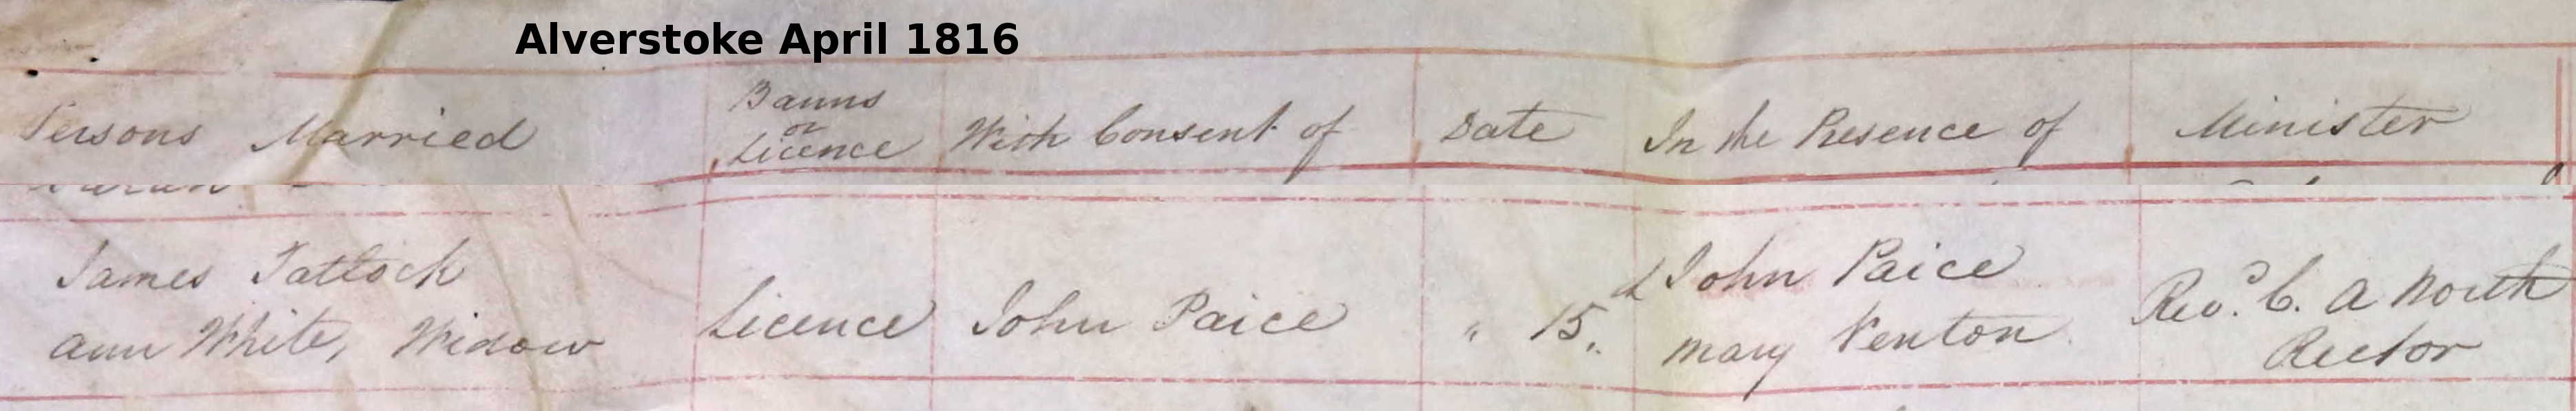 Alverstoke April 1816
Persons Married
Banns
or
Licence
With Consent of
Date
In the Presence of
Minister
James Tattock
Ann White, Widow
Licence
John Paice
" 15th
John Paice
Mary Venton
Revd. C. A North
Rector